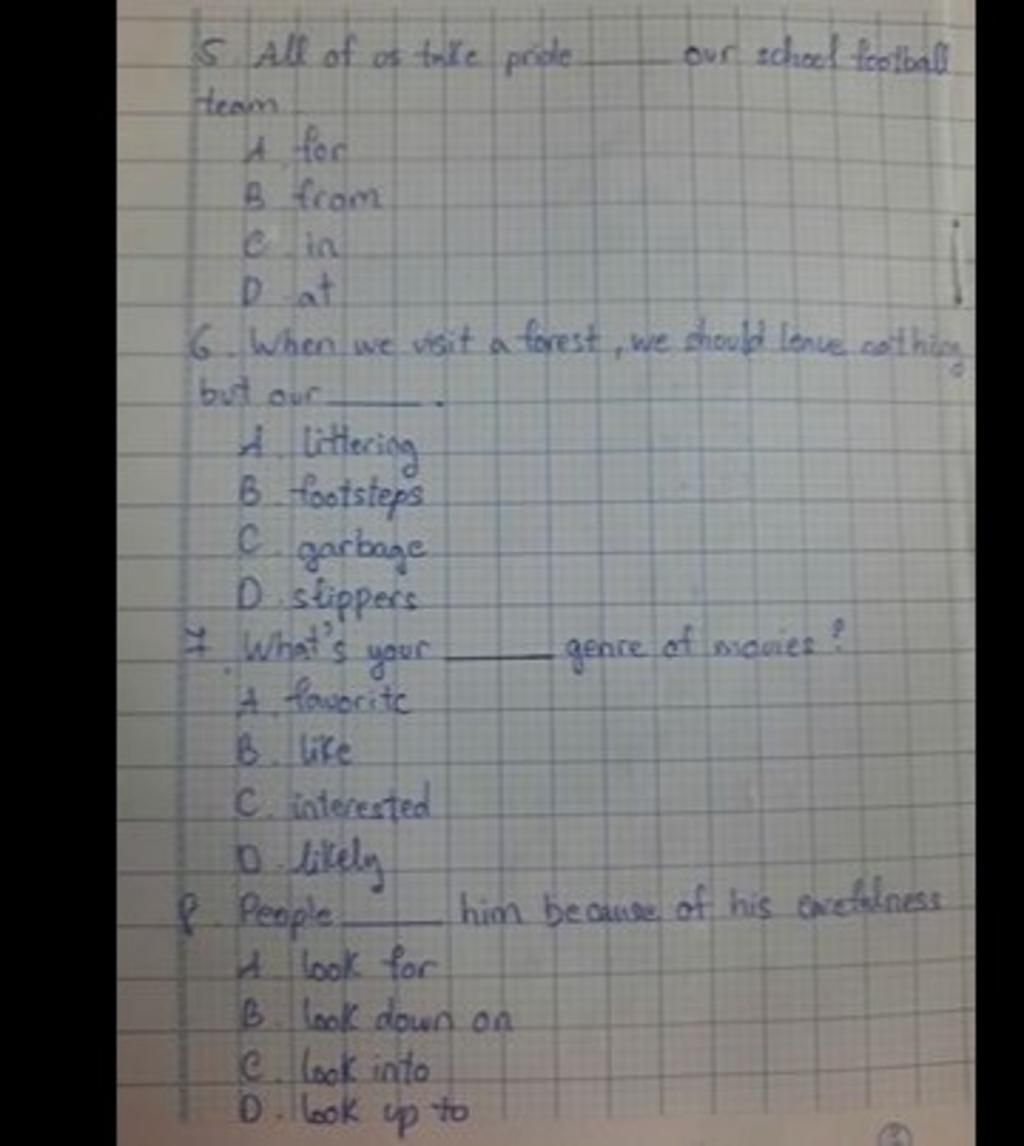 5. All of us take pride ____ our school football
team
A. for
B. from
C. in
D. at
6. When we visit a forest, we should leave nothing
but our ____.
A. littering
B. footsteps
C. garbage
D. slippers
7. What's your ____ genre of movies?
A. favorite
B. like
C. interested
D. likely
8. People ____ him because of his carefulness
A. look for
B. look down on
C. look into
D. look up to